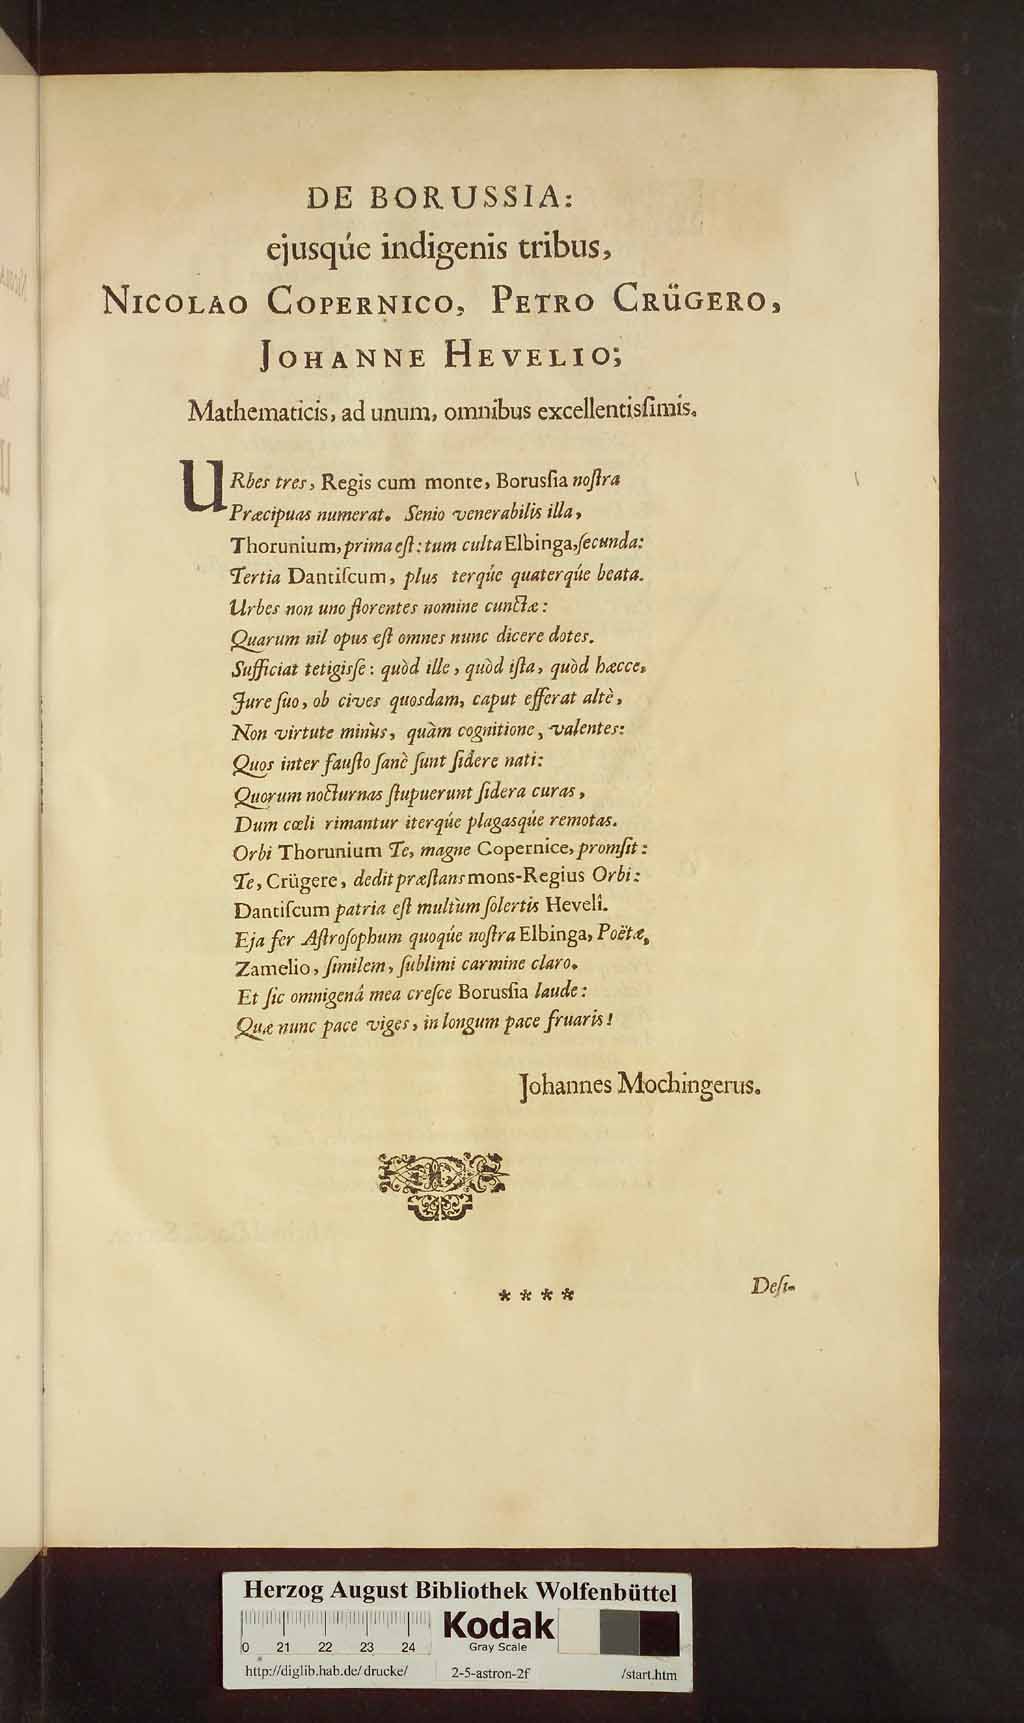 DE BORUSSIA:
ejusqúe indigenis tribus,
NICOLAO COPERNICO, PETRO CRÜGERO,
JOHANNE HEVELIO;
Mathematicis, ad unum, omnibus excellentisſimis.
URbes tres, Regis cum monte, Borusſia noſtra
Præcipuas numerat. Senio venerabilis illa,
Thorunium, prima eſt: tum culta Elbinga, ſecunda:
Tertia Dantiſcum, plus terqúe quaterqúe beata.
Urbes non uno florentes nomine cunctæ:
Quarum nil opus eſt omnes nunc dicere dotes.
Sufficiat tetigisſe: quòd ille, quòd iſta, quòd hæcce,
Jure ſuo, ob cives quosdam, caput efferat altè,
Non virtute minùs, quàm cognitione, valentes:
Quos inter fauſto ſanè ſunt ſidere nati:
Quorum nocturnas ſtupuerunt ſidera curas,
Dum cœli rimantur iterqúe plagasqúe remotas.
Orbi Thorunium Te, magne Copernice, promſit:
Te, Crügere, dedit præſtans mons-Regius Orbi:
Dantiſcum patria eſt multùm ſolertis Hevelî.
Eja fer Aſtroſophum quoqúe noſtra Elbinga, Poëtæ,
Zamelio, ſimilem, ſublimi carmine claro.
Et ſic omnigenâ mea creſce Borusſia laude:
Quæ nunc pace viges, in longum pace fruaris!
Johannes Mochingerus.
* * * *
Deſi-
Herzog August Bibliothek Wolfenbüttel
0 21 22 23 24
Kodak
Gray Scale
http://diglib.hab.de/drucke/ 2-5-astron-2f /start.htm